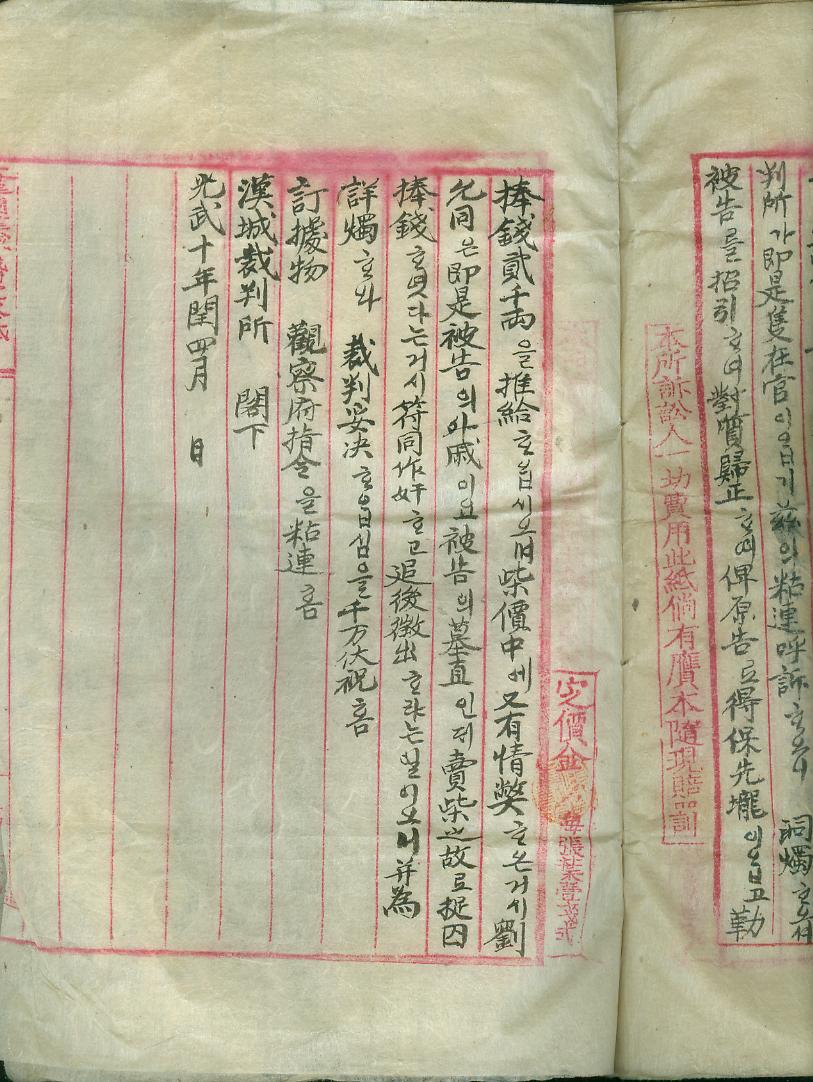 判所가 即是隻在官이옵기 玆의 粘連呼訴ᄒᆞ오니 洞燭ᄒᆞ오셔
被告를 招引ᄒᆞ여 對質歸正ᄒᆞ여 俾原告로 得保先壠의옵고 勒
本所訴訟人一切費用此紙倘有贋本隨現賠罰
定價金
捧錢貳千兩을 推給ᄒᆞ옵시오며 柴價中에 又有情獘ᄒᆞ온거시 劉
允同은 即是被告의 아戚이요 被告의 墓直인데 賣柴之故로 捉囚
捧錢ᄒᆞ엿다는거시 符同作奸ᄒᆞ고 追後徵出ᄒᆞ랴는 이오니 并爲
詳燭ᄒᆞ와 裁判妥决ᄒᆞ옵심을 千万伏祝홈
訂據物 觀察府指令을 粘連홈
漢城裁判所 閣下
光武十年閏四月 日